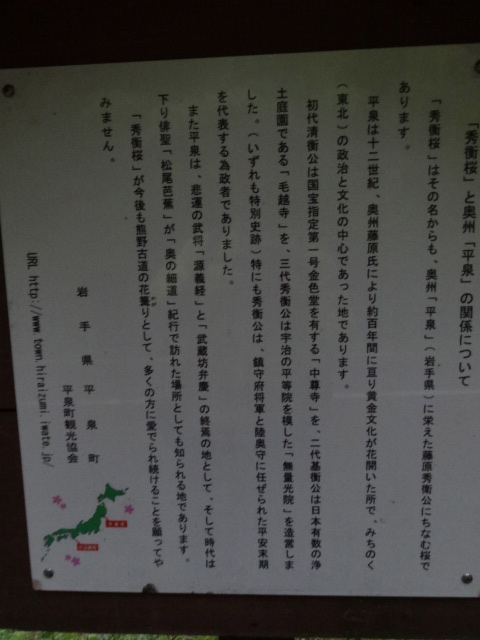 「秀衡桜」と奥州「平泉」の関係について
「秀衡桜」はその名からも、奥州「平泉」（岩手県）に栄えた藤原秀衡公にちなむ桜で
あります。
平泉は十二世紀、奥州藤原氏により約百年間に亘り黄金文化が花開いた所で、みちのく
（東北）の政治と文化の中心であった地であります。
初代清衡公は国宝指定第一号金色堂を有する「中尊寺」を、二代基衡公は日本有数の浄
土庭園である「毛越寺」を、三代秀衡公は宇治の平等院を模した「無量光院」を造営しま
した。（いずれも特別史跡）特にも秀衡公は、鎮守府将軍と陸奥守に任ぜられた平安末期
を代表する為政者でありました。
また平泉は、悲運の武将「源義経」と「武蔵坊弁慶」の終焉の地として、そして時代は
下り俳聖「松尾芭蕉」が「奥の細道」紀行で訪れた場所としても知られる地であります。
「秀衡桜」が今後も熊野古道の花篝りとして、多くの方に愛でられ続けることを願ってや
みません。
岩手県平泉町
平泉町観光協会
URL http://www.town.hiraizumi.iwate.jp/